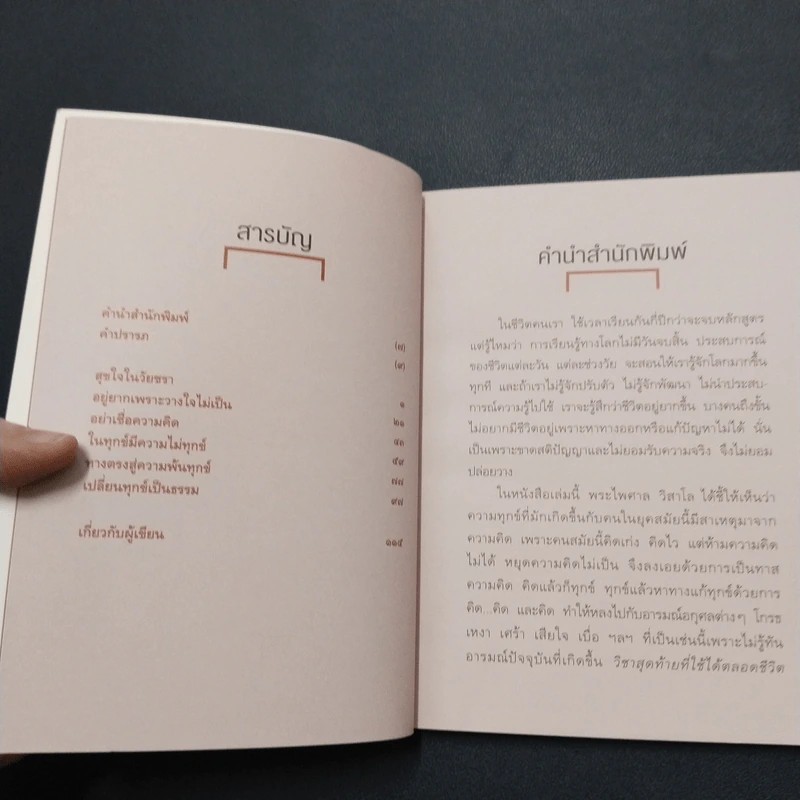 สารบัญ
คำนำสำนักพิมพ์ (๗)
คำปรารภ (๙)
สุขใจในวัยชรา ๑
อยู่ยากเพราะวางใจไม่เป็น ๒๑
อย่าเชื่อความคิด ๔๓
ในทุกข์มีความไม่ทุกข์ ๕๙
ทางตรงสู่ความพ้นทุกข์ ๗๗
เปลี่ยนทุกข์เป็นธรรม ๙๗
เกี่ยวกับผู้เขียน ๑๑๕
คำนำสำนักพิมพ์
ในชีวิตคนเรา ใช้เวลาเรียนกันกี่ปีกว่าจะจบหลักสูตร
แต่รู้ไหมว่า การเรียนรู้ทางโลกไม่มีวันจบสิ้น ประสบการณ์
ของชีวิตแต่ละวัน แต่ละช่วงวัย จะสอนให้เรารู้จักโลกมากขึ้น
ทุกที และถ้าเราไม่รู้จักปรับตัว ไม่รู้จักพัฒนา ไม่นำประสบ-
การณ์ความรู้ไปใช้ เราจะรู้สึกว่าชีวิตอยู่ยากขึ้น บางคนถึงขั้น
ไม่อยากมีชีวิตอยู่เพราะหาทางออกหรือแก้ปัญหาไม่ได้ นั่น
เป็นเพราะขาดสติปัญญาและไม่ยอมรับความจริง จึงไม่ยอม
ปล่อยวาง
ในหนังสือเล่มนี้ พระไพศาล วิสาโล ได้ชี้ให้เห็นว่า
ความทุกข์ที่มักเกิดขึ้นกับคนในยุคสมัยนี้มีสาเหตุมาจาก
ความคิด เพราะคนสมัยนี้คิดเก่ง คิดไว แต่ห้ามความคิด
ไม่ได้ หยุดความคิดไม่เป็น จึงลงเอยด้วยการเป็นทาส
ความคิด คิดแล้วก็ทุกข์ ทุกข์แล้วหาทางแก้ทุกข์ด้วยการ
คิด...คิด และคิด ทำให้หลงไปกับอารมณ์อกุศลต่างๆ โกรธ
เหงา เศร้า เสียใจ เบื่อ ฯลฯ ที่เป็นเช่นนี้เพราะไม่รู้ทัน
อารมณ์ปัจจุบันที่เกิดขึ้น วิชาสุดท้ายที่ใช้ได้ตลอดชีวิต